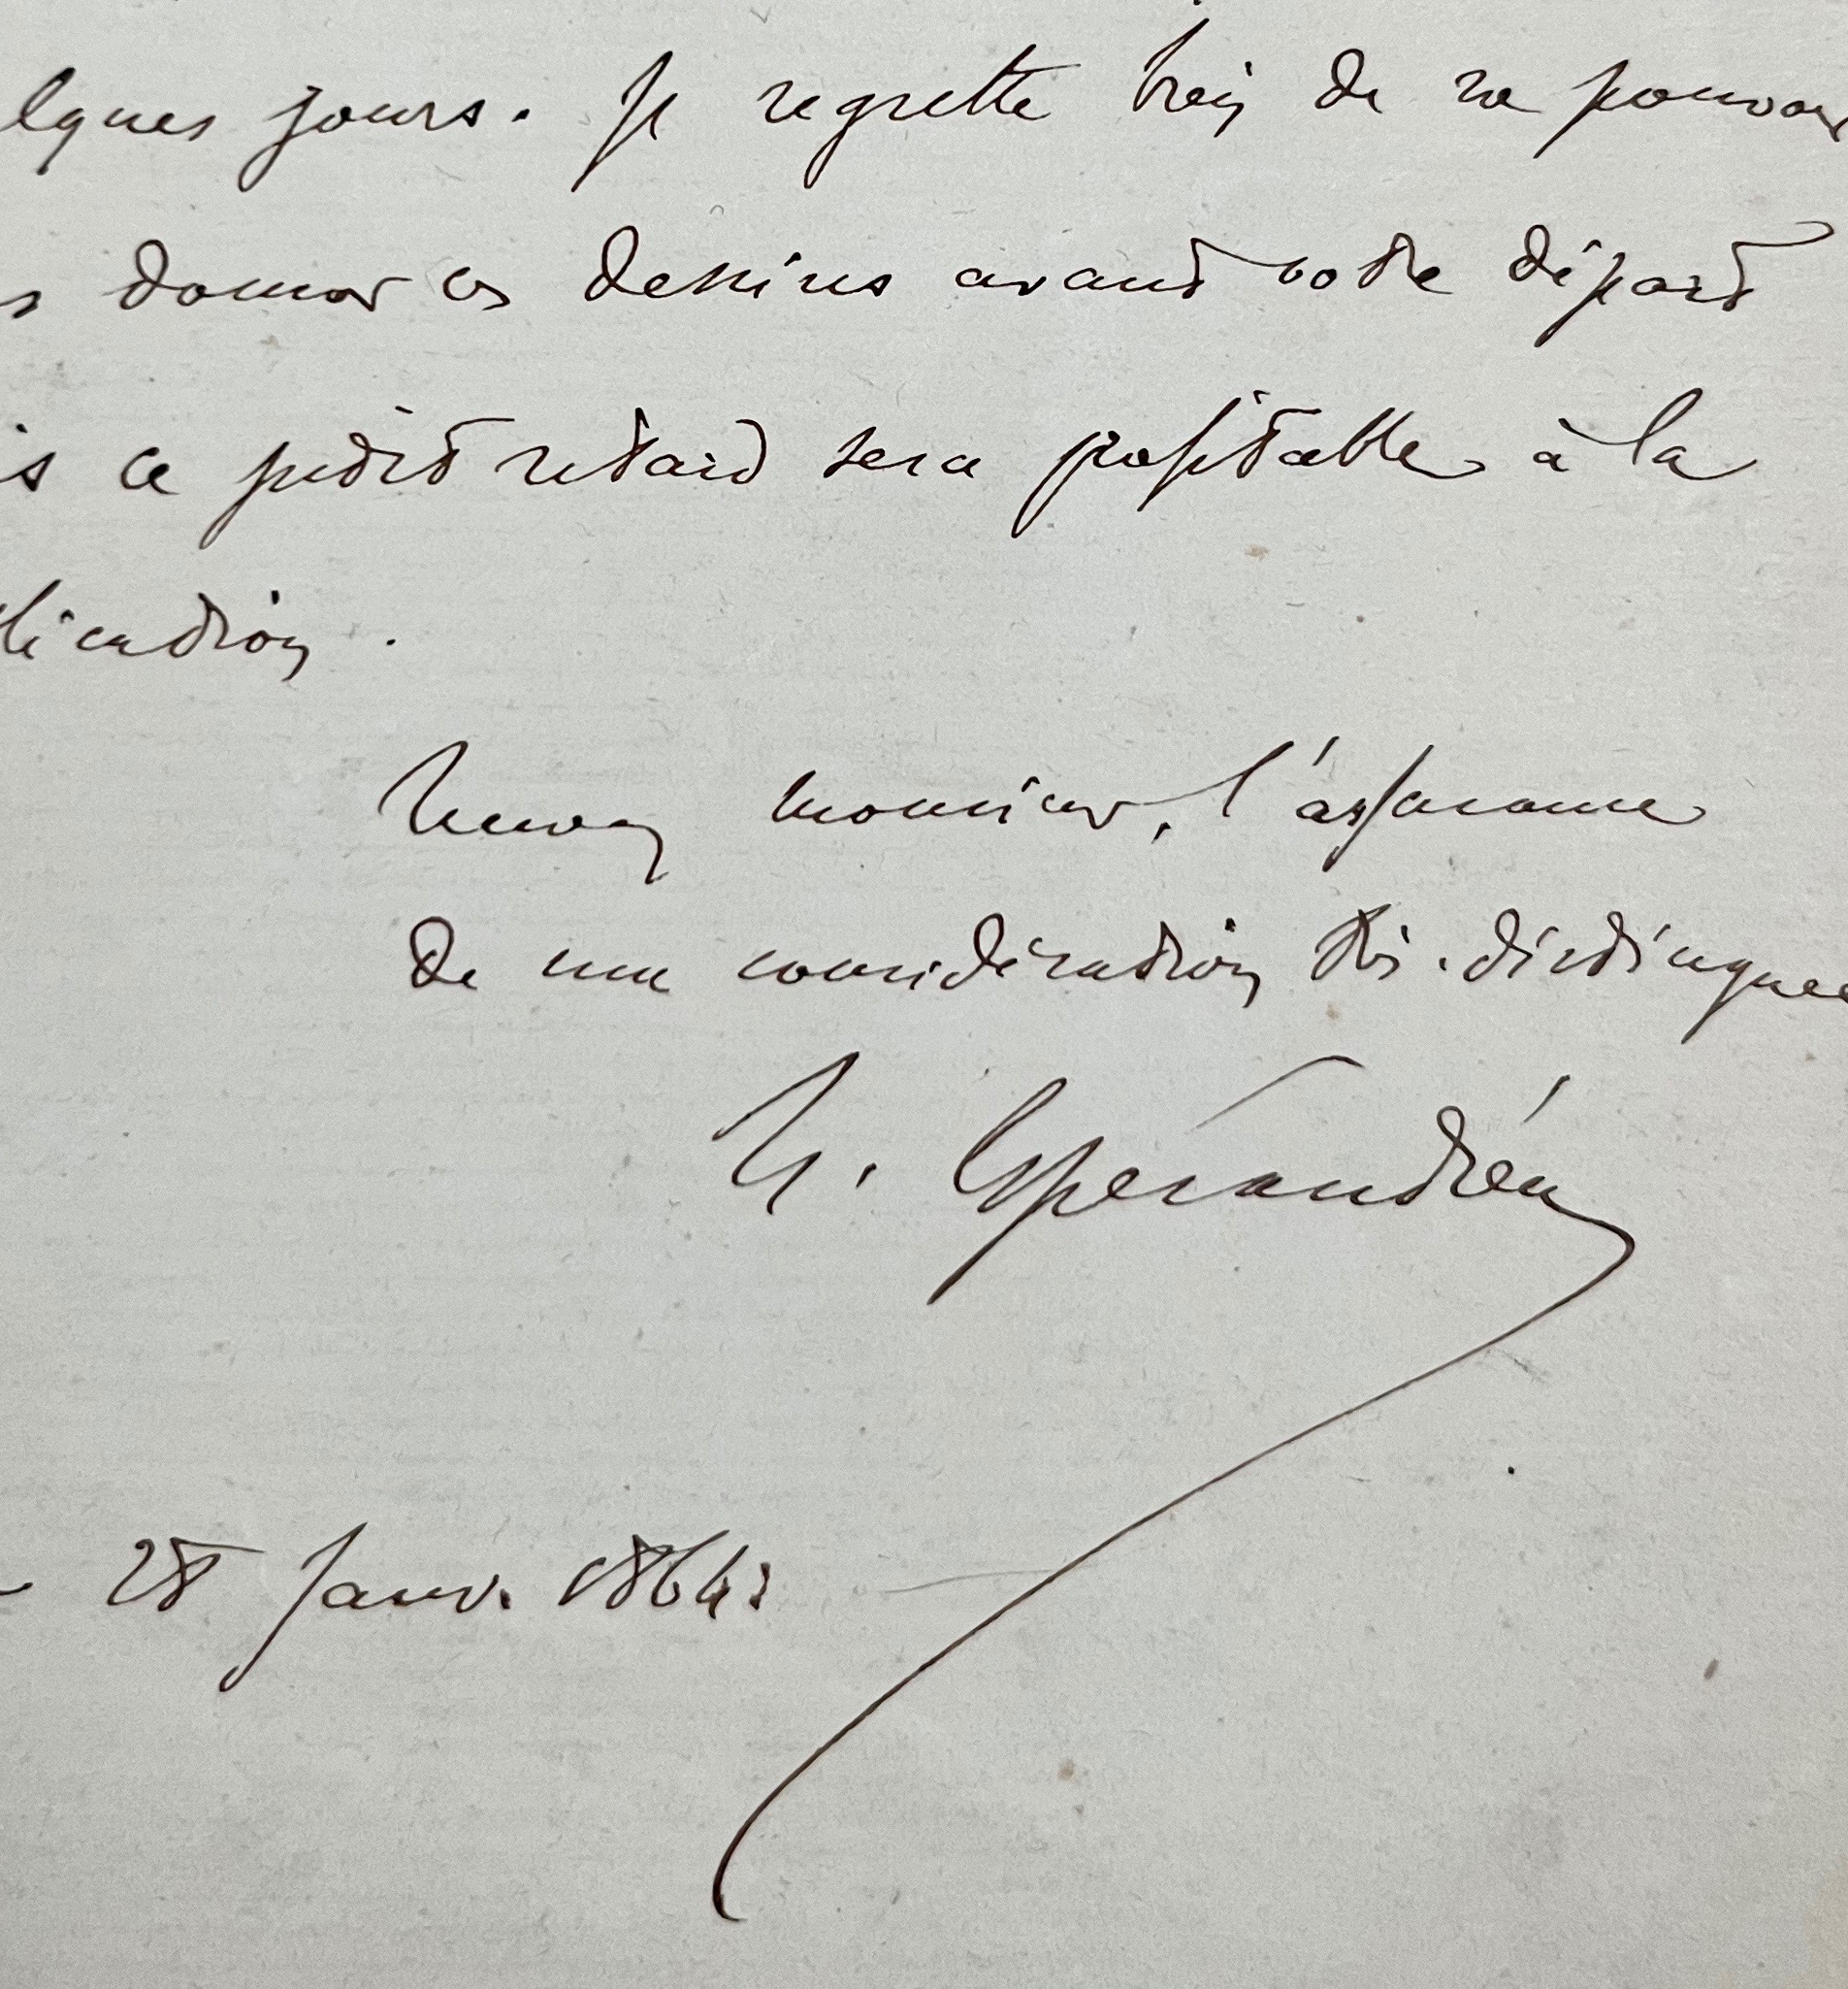 lques jours. Je regrette bien de ne pouvoir
s donner ces dessins avant votre départ
is ce petit retard sera profitable à la
lication.
Recevez monsieur, l'assurance
de ma considération très-distinguée
Espérandieu
28 Janv. 1864